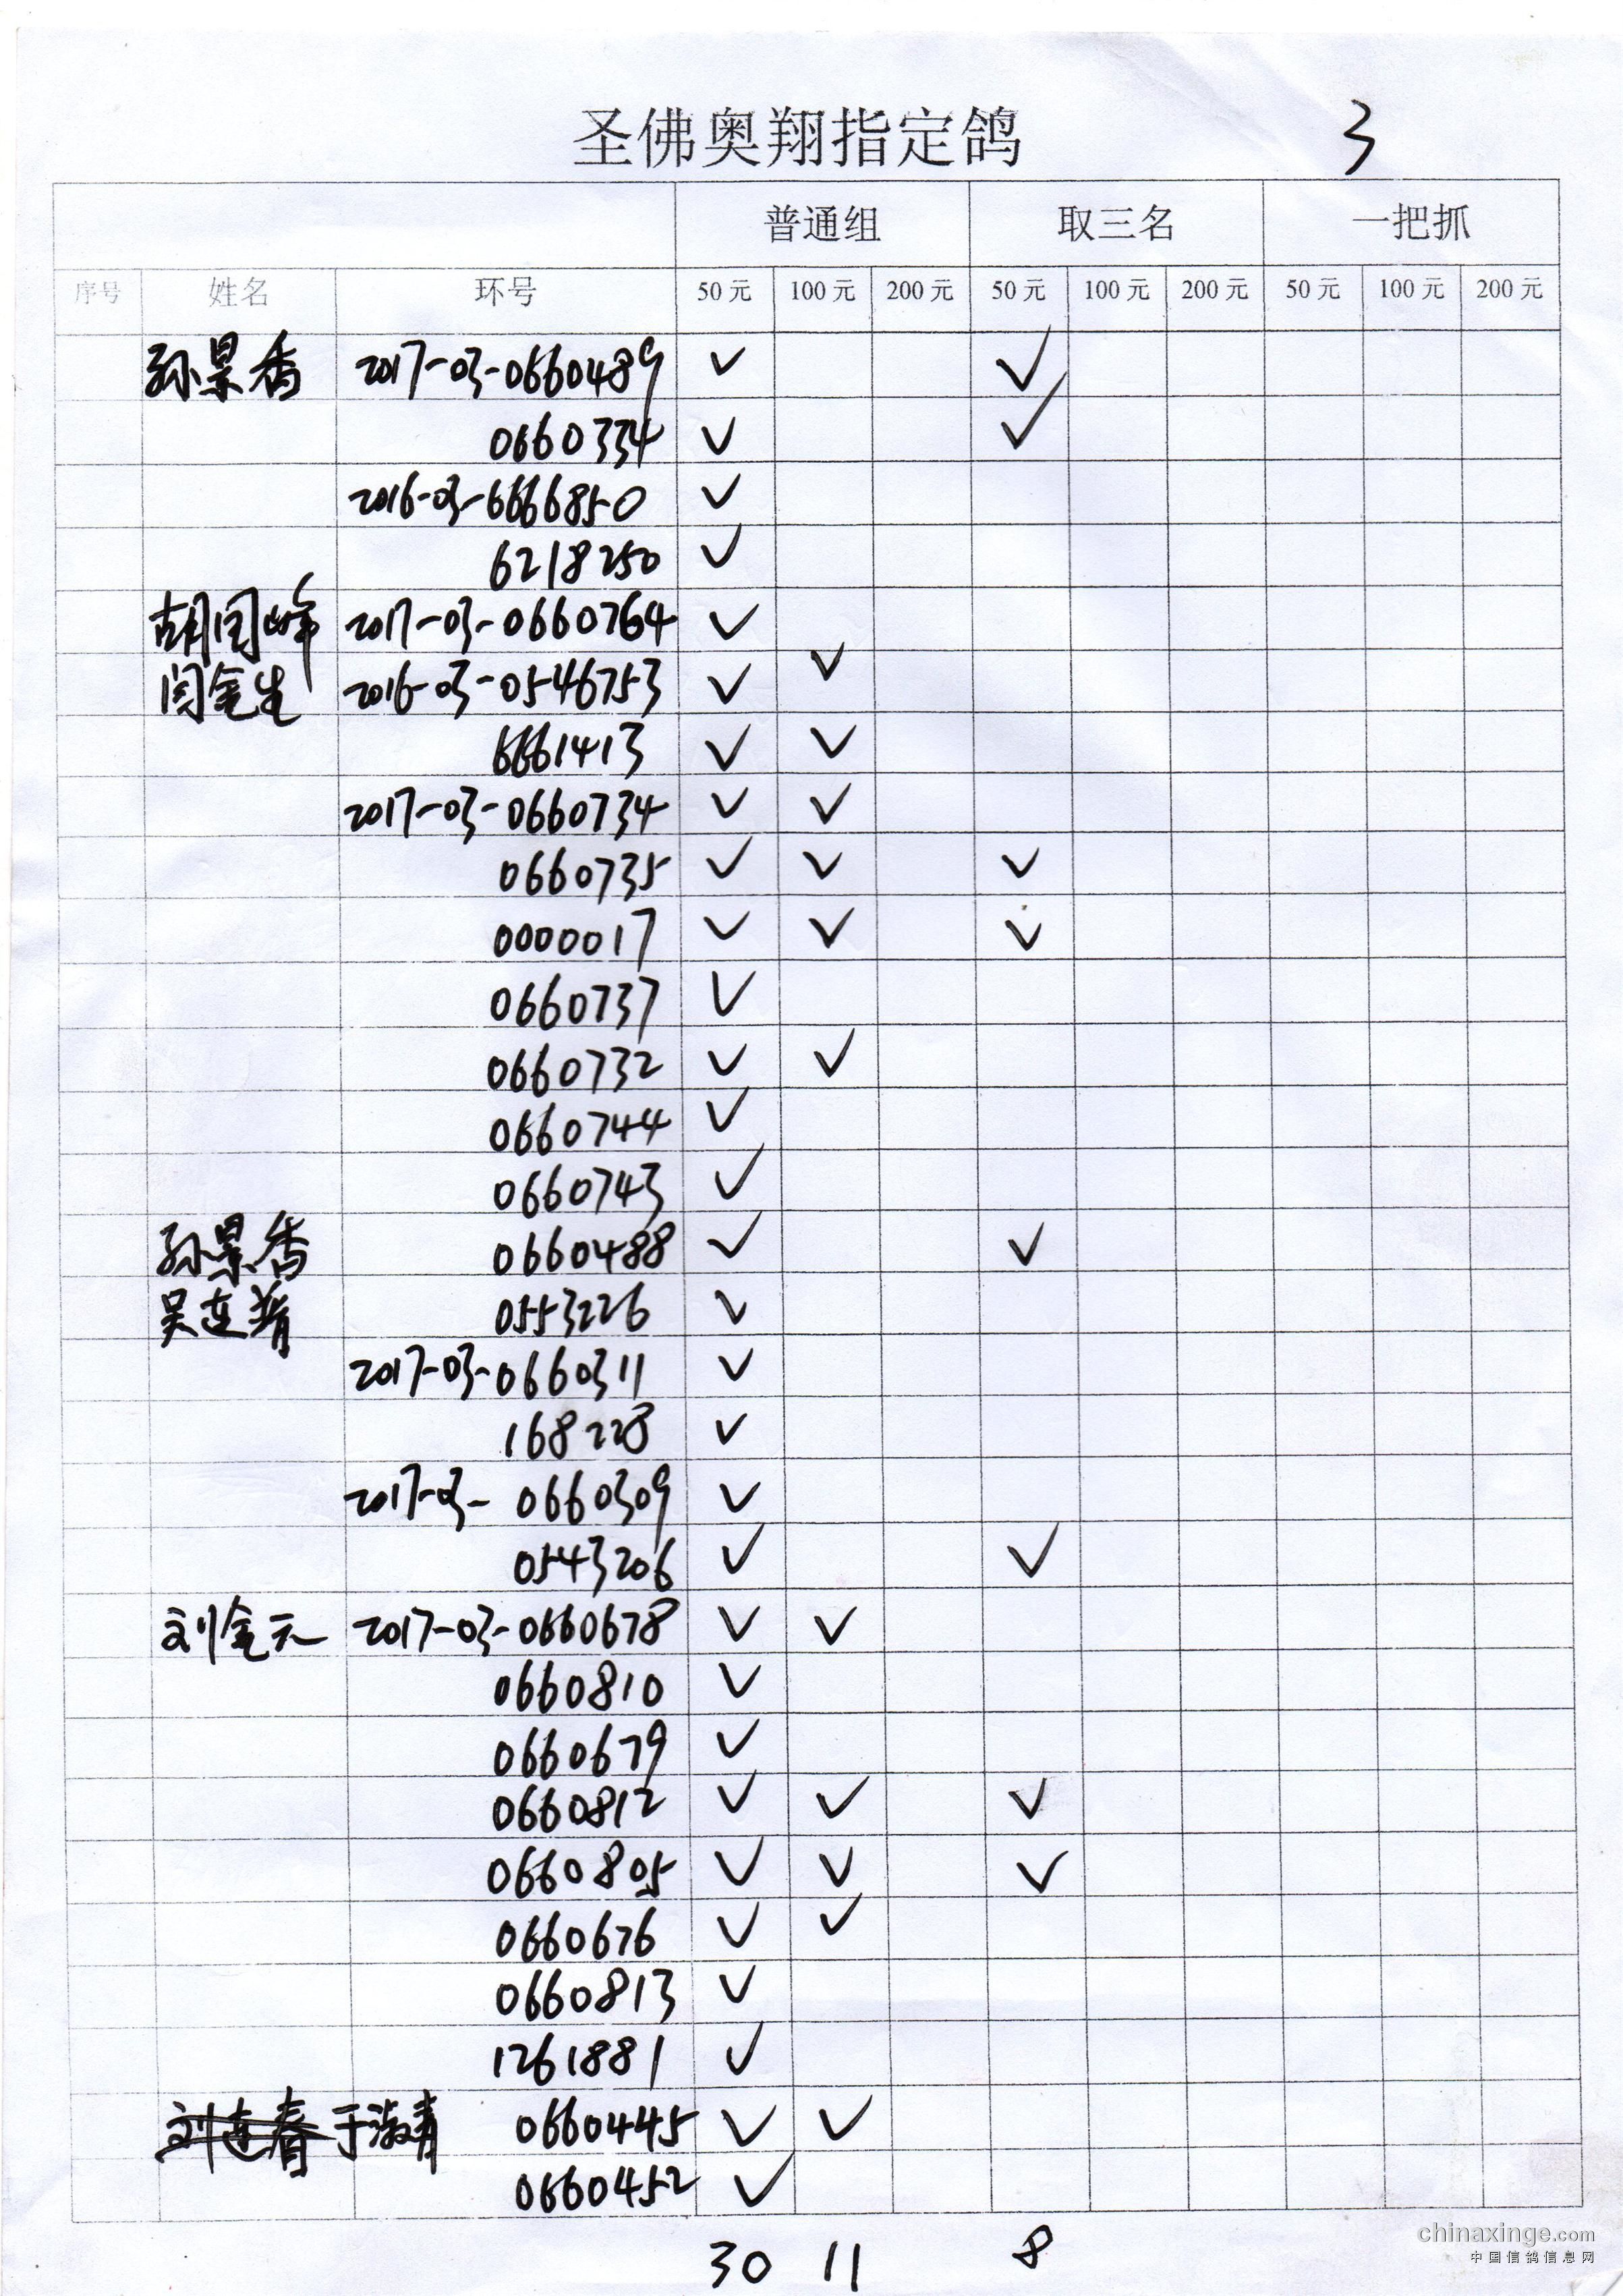 圣佛奥翔指定鸽 3
普通组 取三名 一把抓
序号 姓名 环号 50元 100元 200元 50元 100元 200元 50元 100元 200元
孙景香 2017-03-0660489 ✓ ✓
0660334 ✓ ✓
2016-03-6666850 ✓
6218250 ✓
胡国峰 2017-03-0660764 ✓
闫金生 2016-03-0546753 ✓ ✓
6661413 ✓ ✓
2017-03-0660734 ✓ ✓
0660735 ✓ ✓ ✓
0000017 ✓ ✓ ✓
0660737 ✓
0660732 ✓ ✓
0660744 ✓
0660743 ✓
孙景香 0660488 ✓ ✓
吴连 0553226 ✓
2017-03-0660311 ✓
168228 ✓
2017-03-0660309 ✓
0543206 ✓ ✓
刘金元 2017-03-0660678 ✓ ✓
0660810 ✓
0660679 ✓
0660812 ✓ ✓ ✓
0660805 ✓ ✓ ✓
0660676 ✓ ✓
0660813 ✓
1261881 ✓
刘连春 于淑青 0660445 ✓ ✓
0660452 ✓
30 11 8
chinaxinge.com
中国信鸽信息网